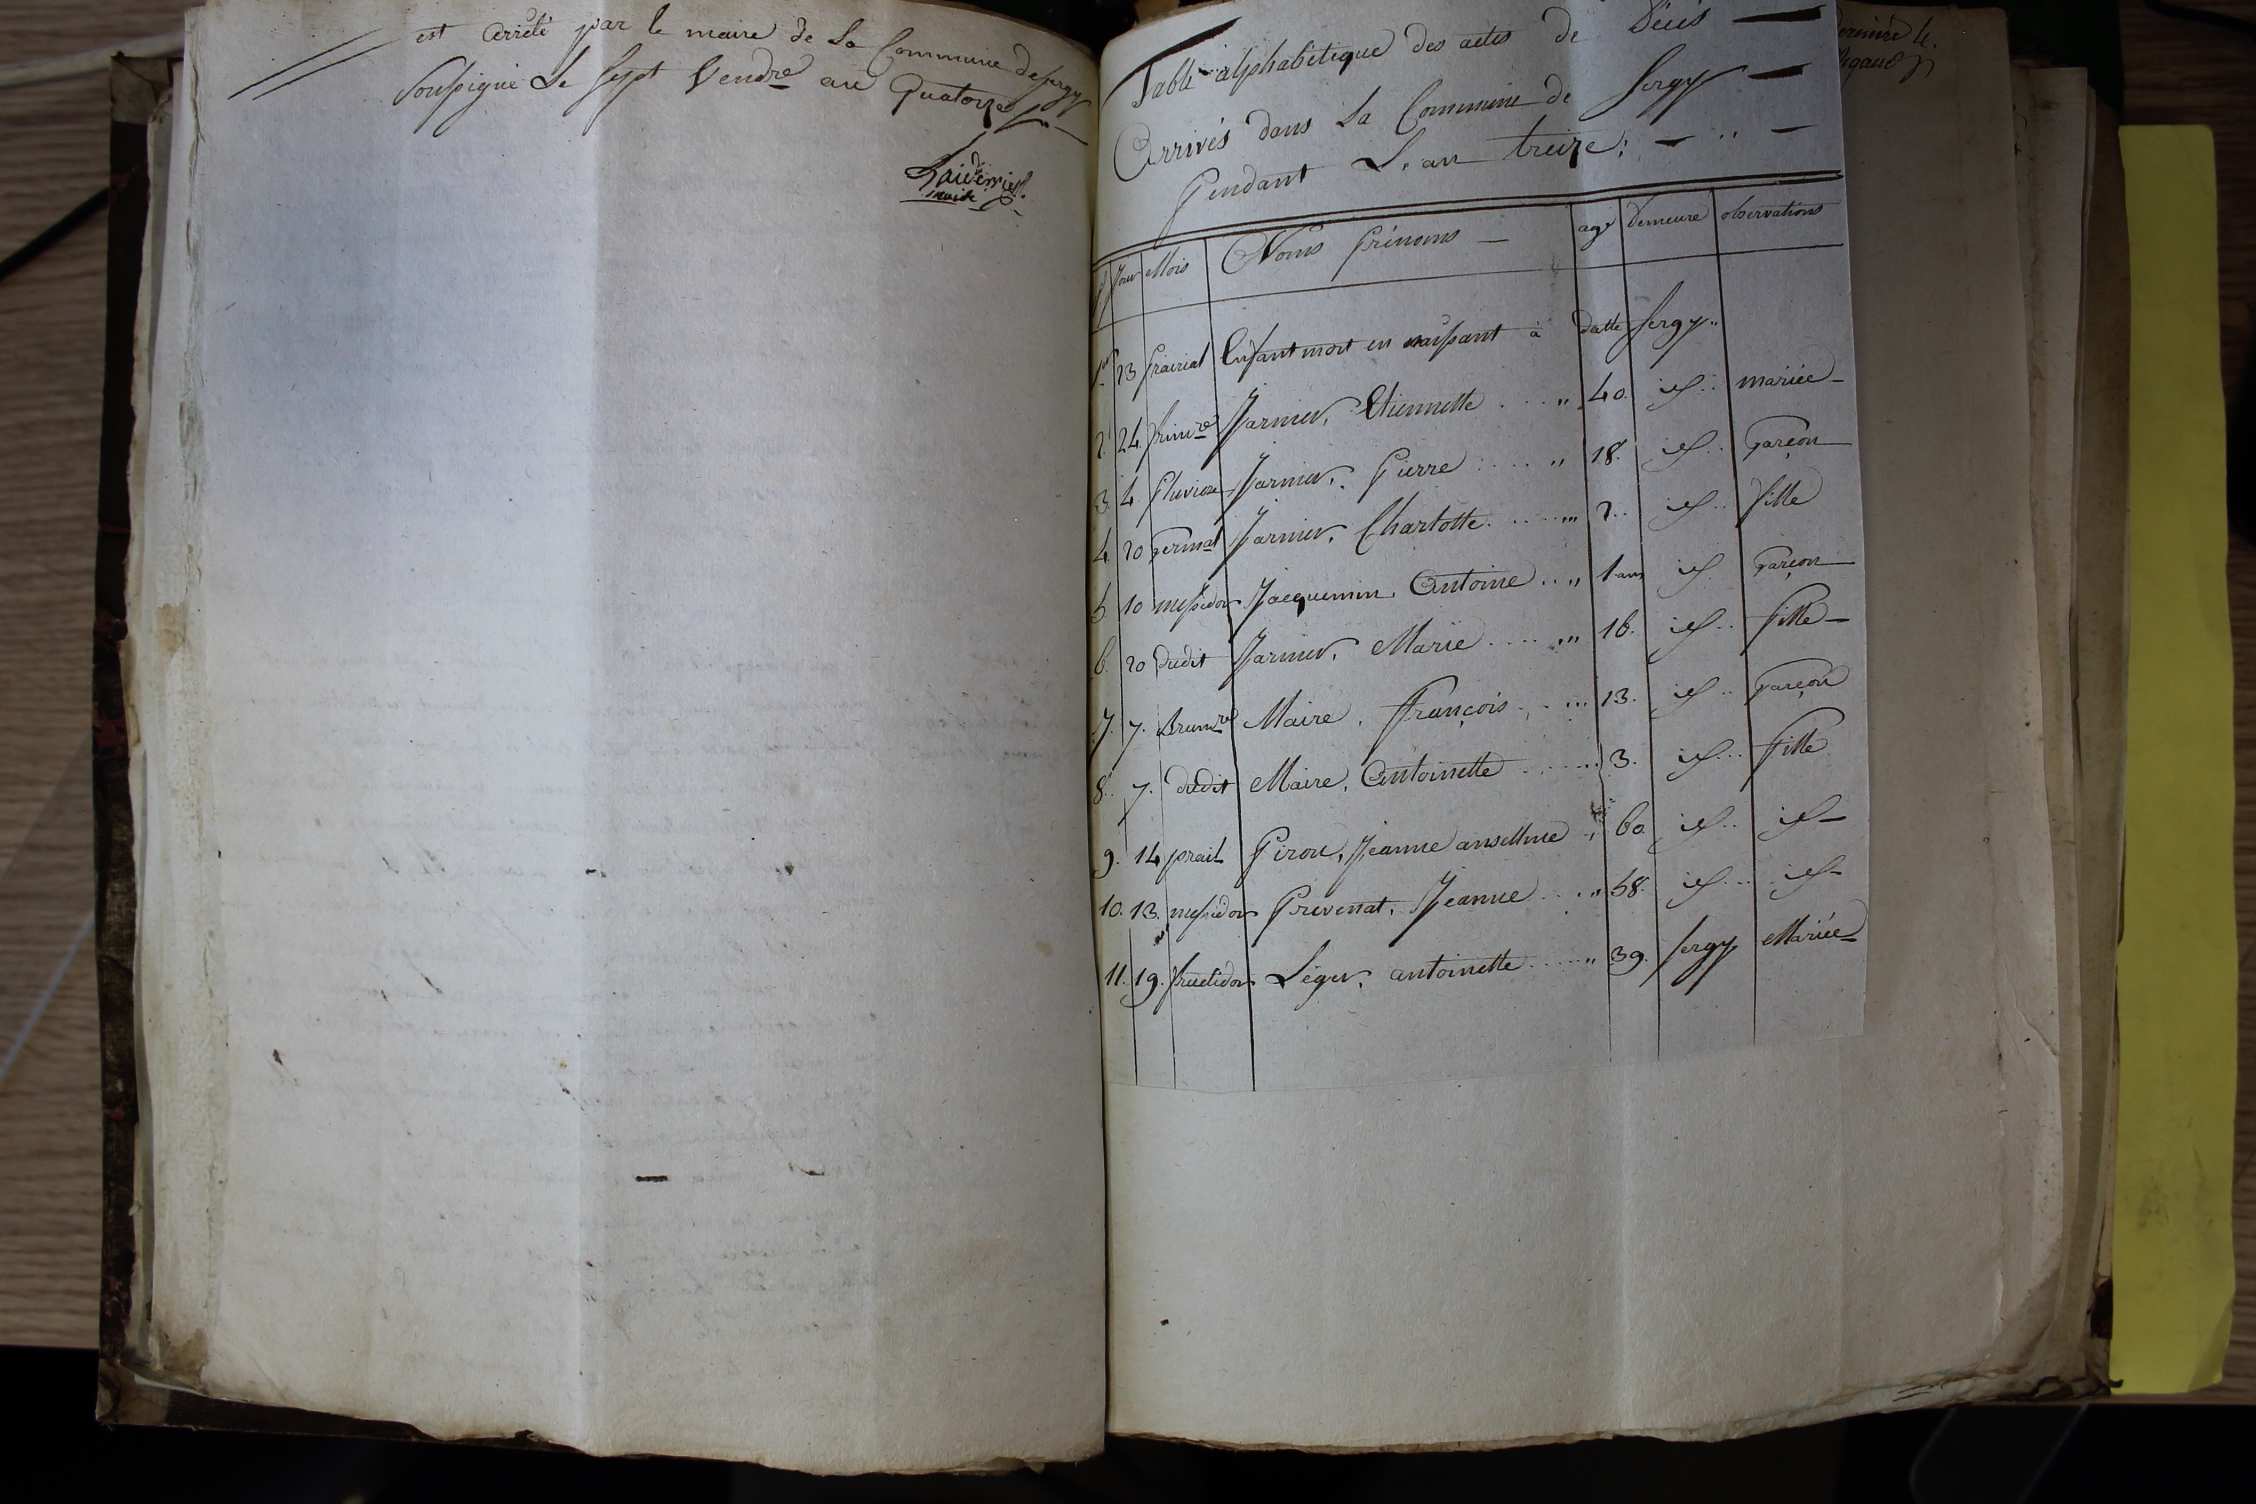 est arrêté par le maire de la Commune de Sergy
Soussigné le sept Vendre an Quatorze
maire
Table alphabétique des actes de Décés
Arrivés dans la Commune de Sergy
Pendant L'an treize;
Nº Jour Mois Noms Prénoms age demeure observations
1er 23 prairial Enfant mort en naissant à datte Sergy
2. 24 frimre Jarnier, Etiennette 40. id. mariée
3. 4 Pluviose Jarnier, Pierre 18. id. Garçon
4. 20 Germal Jarnier, Charlotte 2. id. fille
5. 10 messidor Jacquemin, Antoine 1 ans id. Garçon
6. 20 dudit Jarnier, Marie 16. id. fille
7. 7. Brumre Maire, François 13. id. Garçon
8. 7. dudit Maire, Antoinette 3. id. fille
9. 14 prail Pirou, Jeanne anselme 60 id. id.
10. 13. messidor Prevenat, Jeanne 58. id. id.
11. 19. fructidor Léger, antoinette 39. Sergy Mariée